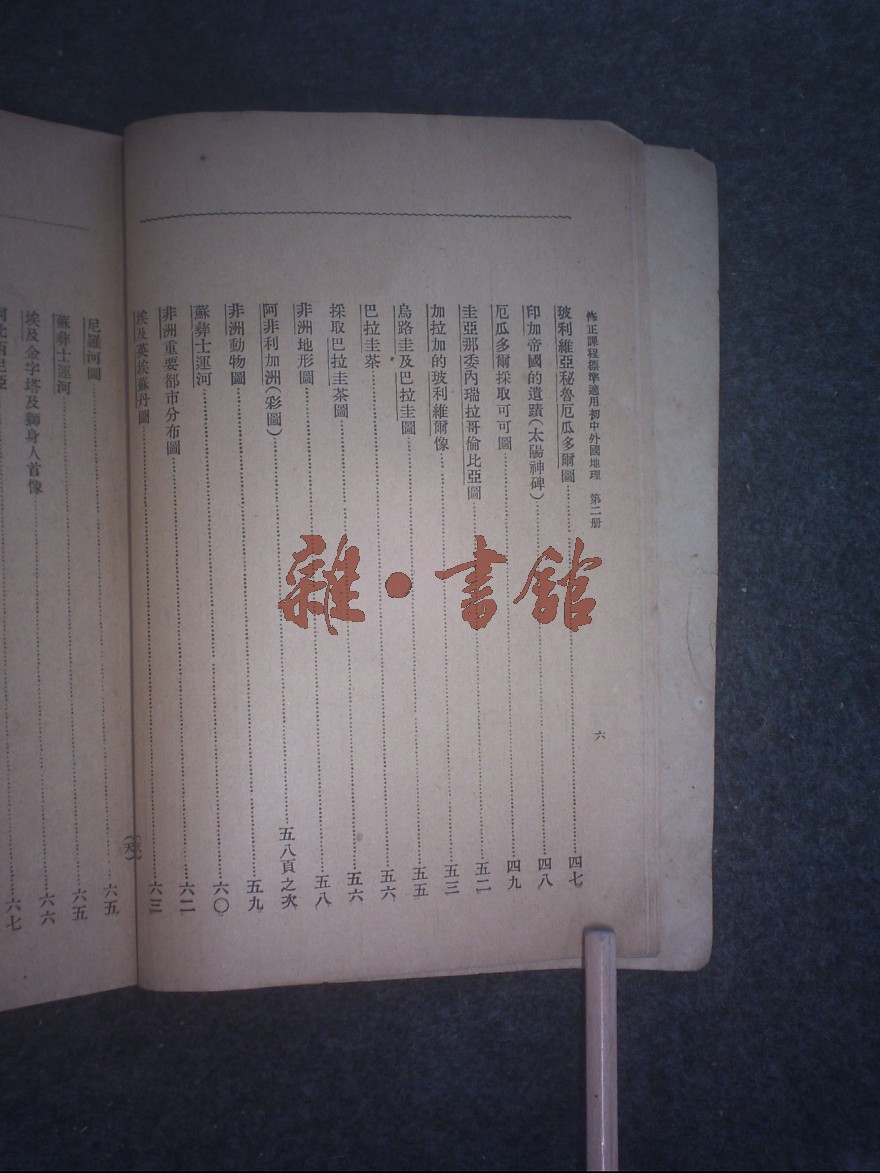 修正課程標準適用初中外國地理　第二册
六
玻利維亞秘魯厄瓜多爾圖……四七
印加帝國的遺蹟(太陽神碑)……四八
厄瓜多爾採取可可圖……四九
圭亞那委內瑞拉哥倫比亞圖……五二
加拉加的玻利維爾像……五三
烏路圭及巴拉圭圖……五五
巴拉圭茶……五六
採取巴拉圭茶圖……五六
非洲地形圖……五八
阿非利加洲(彩圖)……五八頁之次
非洲動物圖……五九
蘇彝士運河……六〇
非洲重要都市分布圖……六二
埃及英埃蘇丹圖……六三
尼羅河圖……六五
蘇彝士運河……六五
埃及金字塔及獅身人首像……六六
……六七
雜·書館